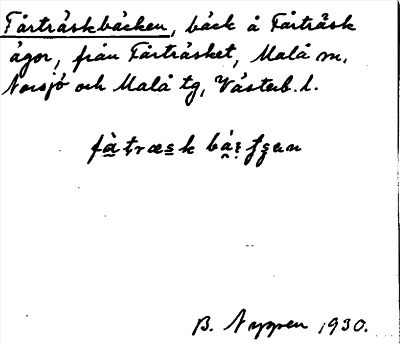 Fårträskbäcken, bäck å Fårträsk
ägor, från Fårträsket, Malå sn,
Norsjö och Malå tg, Västerb. l.
B. Nyppen 1930.